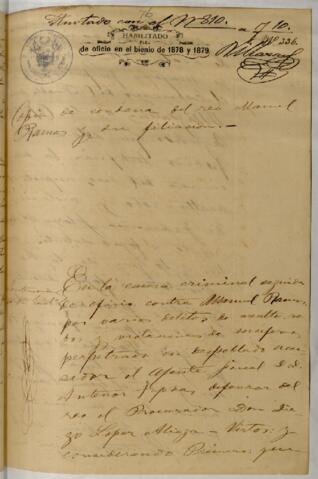 Anotado con el Nº 310.
76
HABILITADO
de oficio en el bienio de 1878 y 1879
Nº 336.
Copia de condena del reo Manuel
Ramos y su filiacion.
En la causa criminal seguida
de oficio contra Manuel Ramos
por varios delitos de asalto, ro-
bos y matanzas de
perpetrados en despoblado acu-
sador el Ajente fiscal d. d.
Antenor y defensor del
reo el Procurador Don Die-
go Lopez Aliaga - Vistos: y
considerando Primero: que